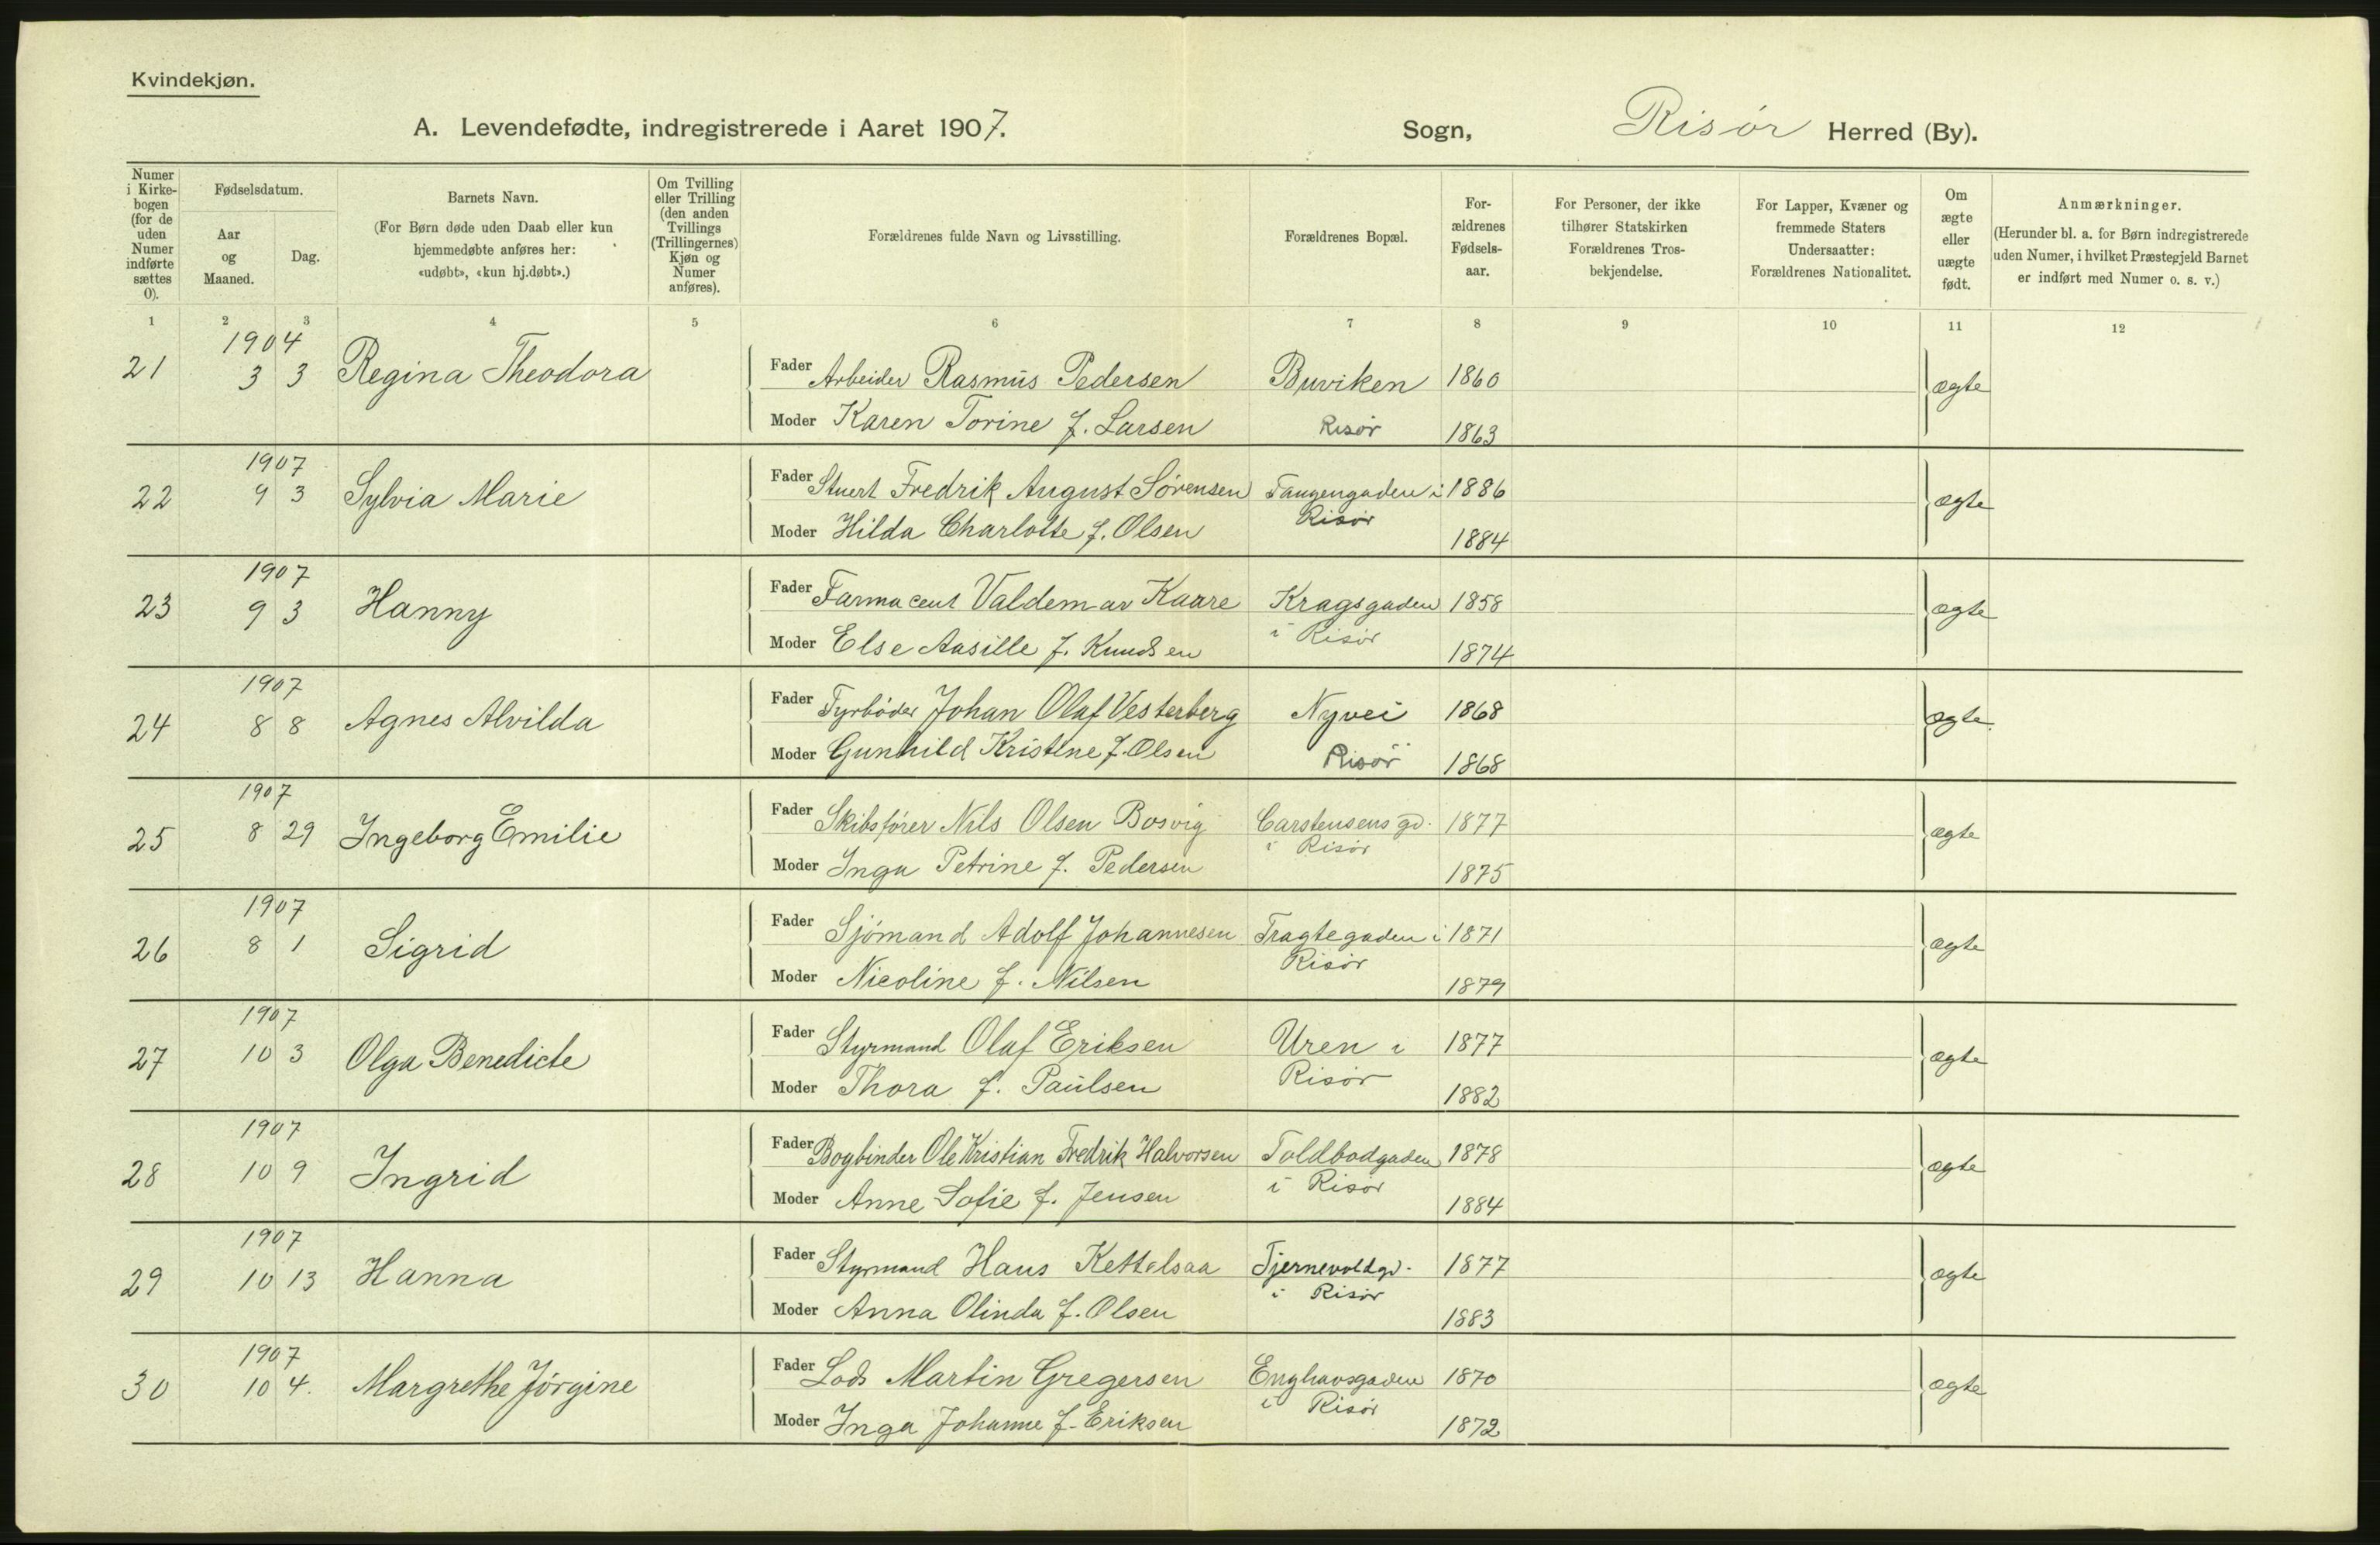 Kvindekjøn.
A. Levendefødte, indregistrerede i Aaret 1907. Sogn, Risör Herred (By).
Numer i Kirkebogen (for de uden Numer indførte sættes 0).
Fødselsdatum.
Aar og Maaned.
Dag.
Barnets Navn.
(For Børn døde uden Daab eller kun
hjemmedøbte anføres her:
«udøbt», «kun hj.døbt».)
Om Tvilling
eller Trilling
(den anden
Tvillings
(Trillingernes)
Kjøn og
Numer
anføres).
Forældrenes fulde Navn og Livsstilling.
Forældrenes Bopæl.
For-
ældrenes
Fødsels-
aar.
For Personer, der ikke
tilhører Statskirken
Forældrenes Tros-
bekjendelse.
For Lapper, Kvæner og
fremmede Staters
Undersaatter:
Forældrenes Nationalitet.
Om
ægte
eller
uægte
født.
Anmærkninger.
(Herunder bl. a. for Børn indregistrerede
uden Numer, i hvilket Præstegjeld Barnet
er indført med Numer o. s. v.)
1 2 3 4 5 6 7 8 9 10 11 12
1904
21 3 3 Regina Theodora Fader Arbeider Rasmus Pedersen Buviken 1860 ægte
Moder Karen Torine f. Larsen Risör 1863
1907
22 9 3 Sylvia Marie Fader Stuert Fredrik August Sörensen Tangengaden i 1886 ægte
Risör
Moder Hilda Charlotte f. Olsen 1884
1907
23 9 3 Hanny Fader Farmaceut Valdemar Kaare Kragsgaden 1858 ægte
i Risör
Moder Else Aasille f. Knudsen 1874
1907
24 8 8 Agnes Alvilda Fader Fyrböder Johan Olaf Vesterberg Nyvei 1868 ægte
Moder Gunhild Kristine f. Olsen Risör 1868
1907
25 8 29 Ingeborg Emilie Fader Skibsförer Nils Olsen Bosvig Carstensens gd. 1877 ægte
i Risör
Moder Inga Petrine f. Pedersen 1875
1907
26 8 1 Sigrid Fader Sjömand Adolf Johannesen Tragtegaden i 1871 ægte
Risör
Moder Nicoline f. Nilsen 1879
1907
27 10 3 Olga Benedicte Fader Styrmand Olaf Eriksen Uren i 1877 ægte
Risör
Moder Thora f. Paulsen 1882
1907
28 10 9 Ingrid Fader Bogbinder Ole Kristian Fredrik Halvorsen Toldbodgaden 1878 ægte
i Risör
Moder Anne Sofie f. Jensen 1884
1907
29 10 13 Hanna Fader Styrmand Hans Kettelsaa Tjernevoldgd. 1877 ægte
i Risör
Moder Anna Olinda f. Olsen 1883
1907
30 10 4. Margrethe Jörgine Fader Lods Martin Gregersen Enghavsgaden 1870 ægte
i Risör
Moder Inga Johanne f. Eriksen 1872